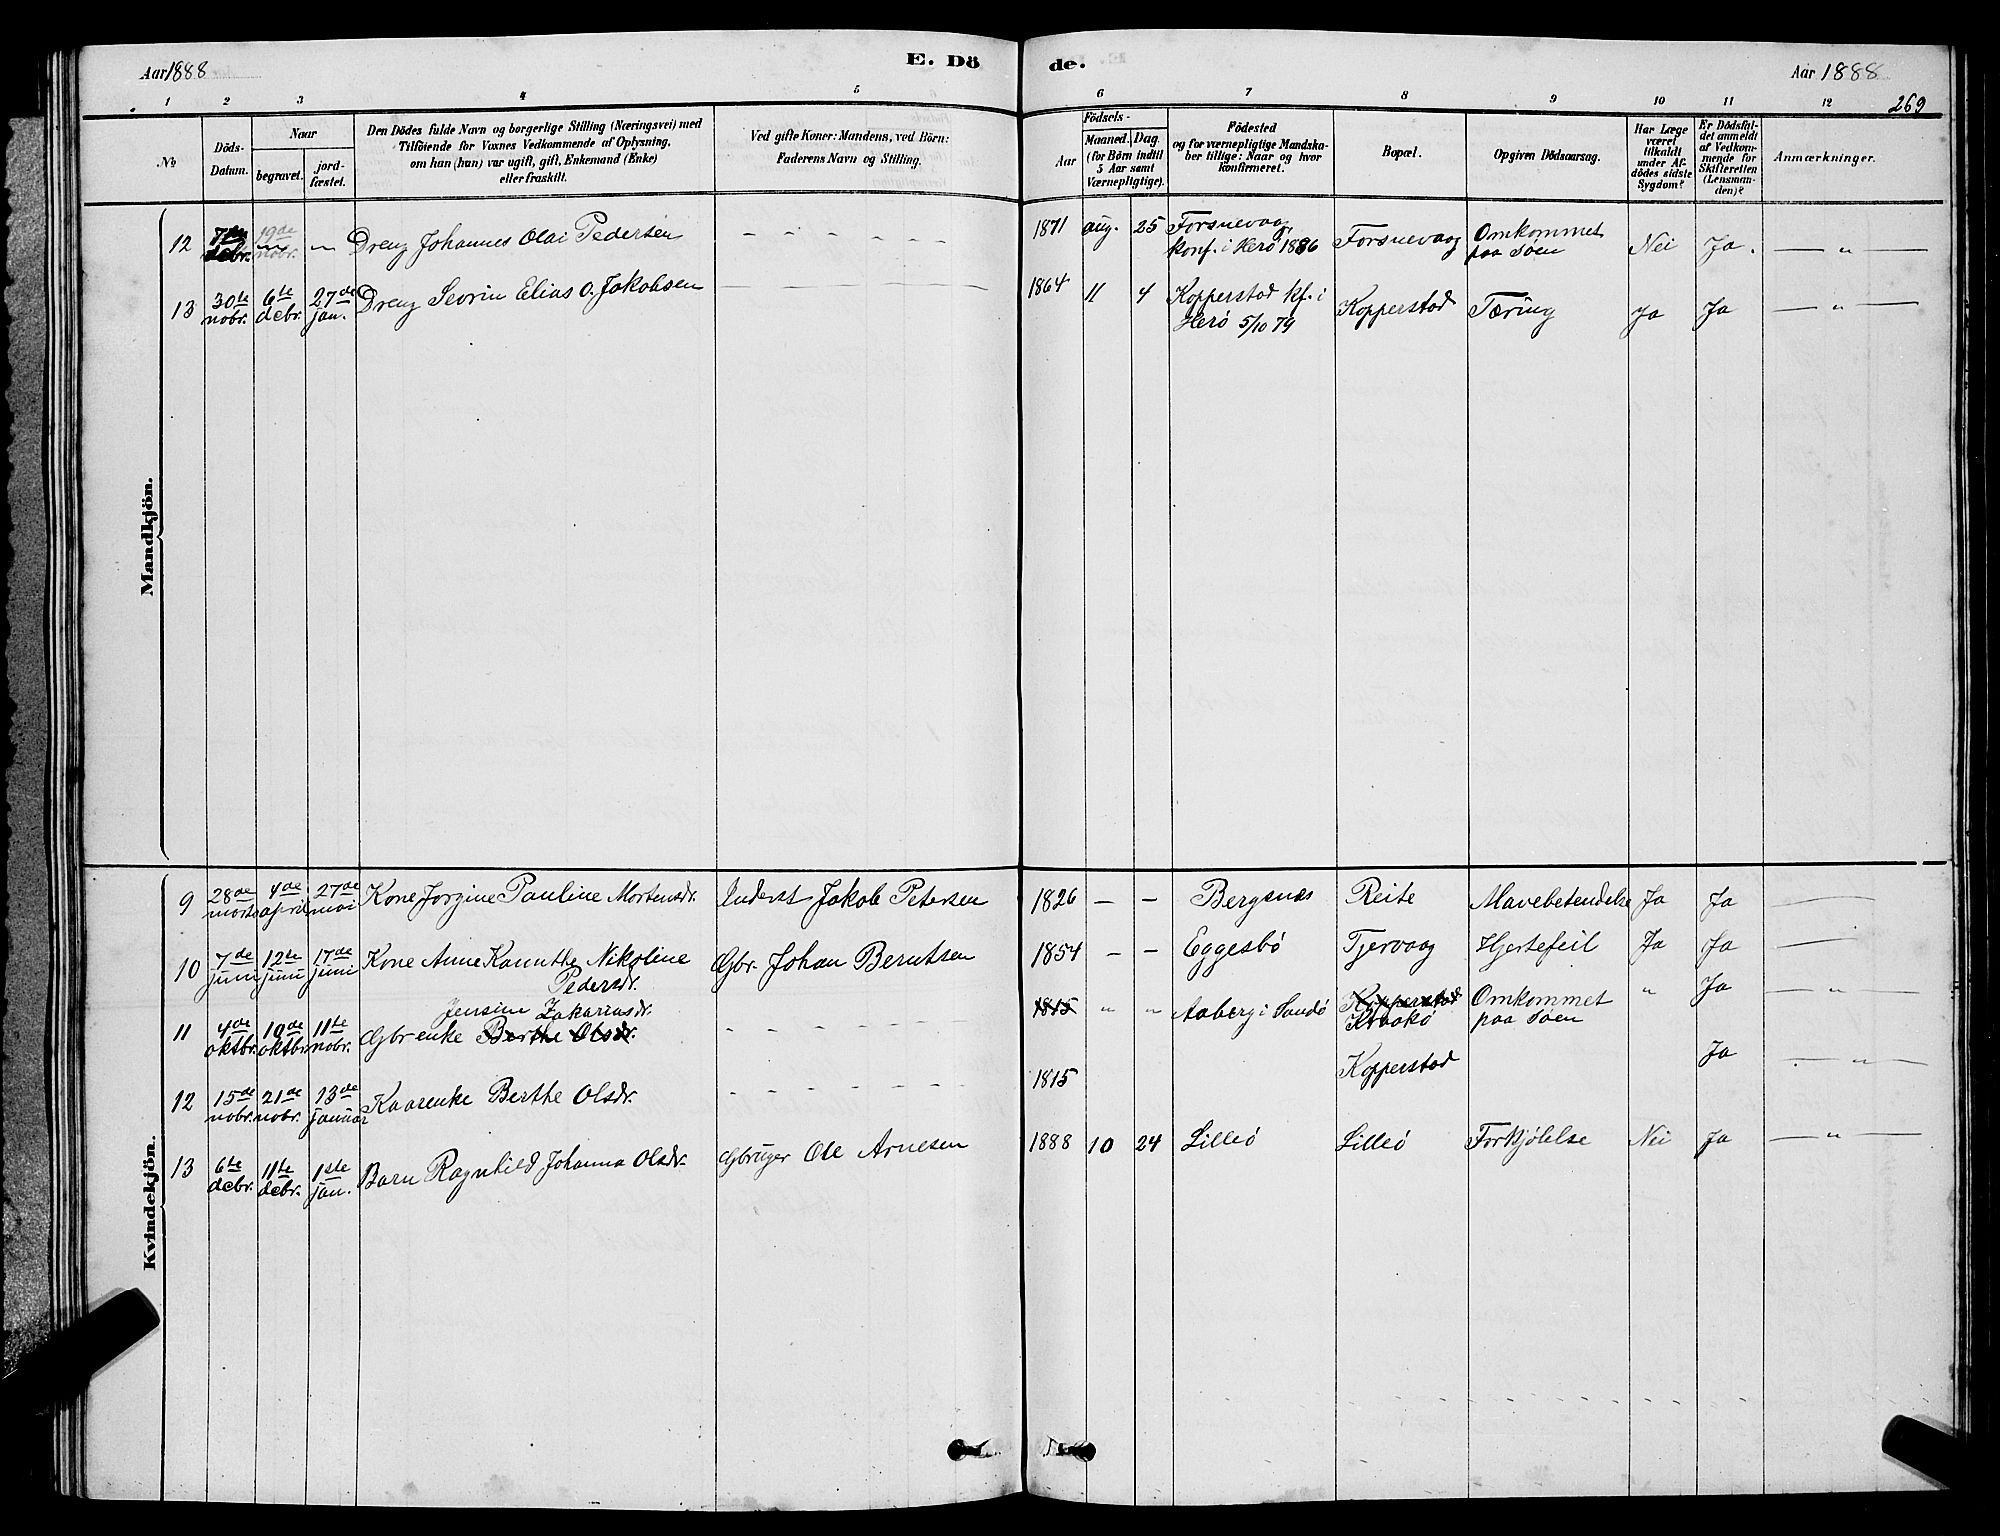 Aar 1888
E. Dö
de.
Aar 1888
269
1 2 3 4 5 6 7 8 9 10 11 12
No
Döds-Datum.
Naar
begravet.
jord-fæstet.
Den Dödes fulde Navn og borgerlige Stilling (Næringsvei) med
Tilföiende for Voxnes Vedkommende af Oplysning,
om han (hun) var ugift, gift, Enkemand (Enke)
eller fraskilt.
Ved gifte Koner: Mandens, ved Börn:
Faderens Navn og Stilling.
Födsels-
Aar
Maaned. Dag.
(for Börn indtil
5 Aar samt
Værnepligtige).
Födested
og for værnepligtige Mandska-
ber tillige: Naar og hvor
konfirmeret.
Bopæl.
Opgiven Dödsaarsag.
Har Læge
været
tilkaldt
under Af-
dödes sidste
Sygdom?
Er Dödsfal-
det anmeldt
af Vedkom-
mende for
Skifteretten
(Lensman-
den)?
Anmærkninger.
Mandkjön.
12 7de debr. 19de nobr. " Dreng Johannes Olai Pedersen - - - - - - 1871 aug. 25 Forsnevaag, konf. i Herö 1886 Forsnevaag Omkommet paa Söen Nei Ja. — " —
13 30te nobr. 6te debr. 27de jan. Dreng Sevrin Elias O. Jakobsen — — — — 1864 11 4 Kopperstad kf. i Herö 5/10 79 Kopperstad Tæring Ja Ja — " —
Kvindekjön.
9 28de marts 4de april 27de mai Kone Jorgine Pauline Mortensdr. Inderst Jakob Petersen 1826 — — Bergsnæs Reite Mavebetendelse Ja Ja —
10 7de juni 12te juni 17de juni Kone Anne Kannthe Nikoline Pedersdr. Gbr. Johan Berntsen 1854 — — Eggesbö Tjervaag Hjertefeil Ja Ja —
Jensine Zakariasdr.
11 4de oktbr. 10de oktbr. 11te nobr. Gbr enke Berthe Olsdr. - - - - - - 1815 " " Aaberg i Sandö Kopperstad Kvakö Omkommet paa Söen " Ja — " —
12 15de nobr. 21de nobr. 13de januar Kaarenke Berthe Olsdr. - - - - - - 1815 Kopperstad Ja — " —
13 6te debr. 11te debr. 1ste jan. Barn Ragnhild Johanna Olsdr. Gbruger Ole Arnesen 1888 10 24 Lilleö Lilleö Forkjölelse Nei Ja — " —